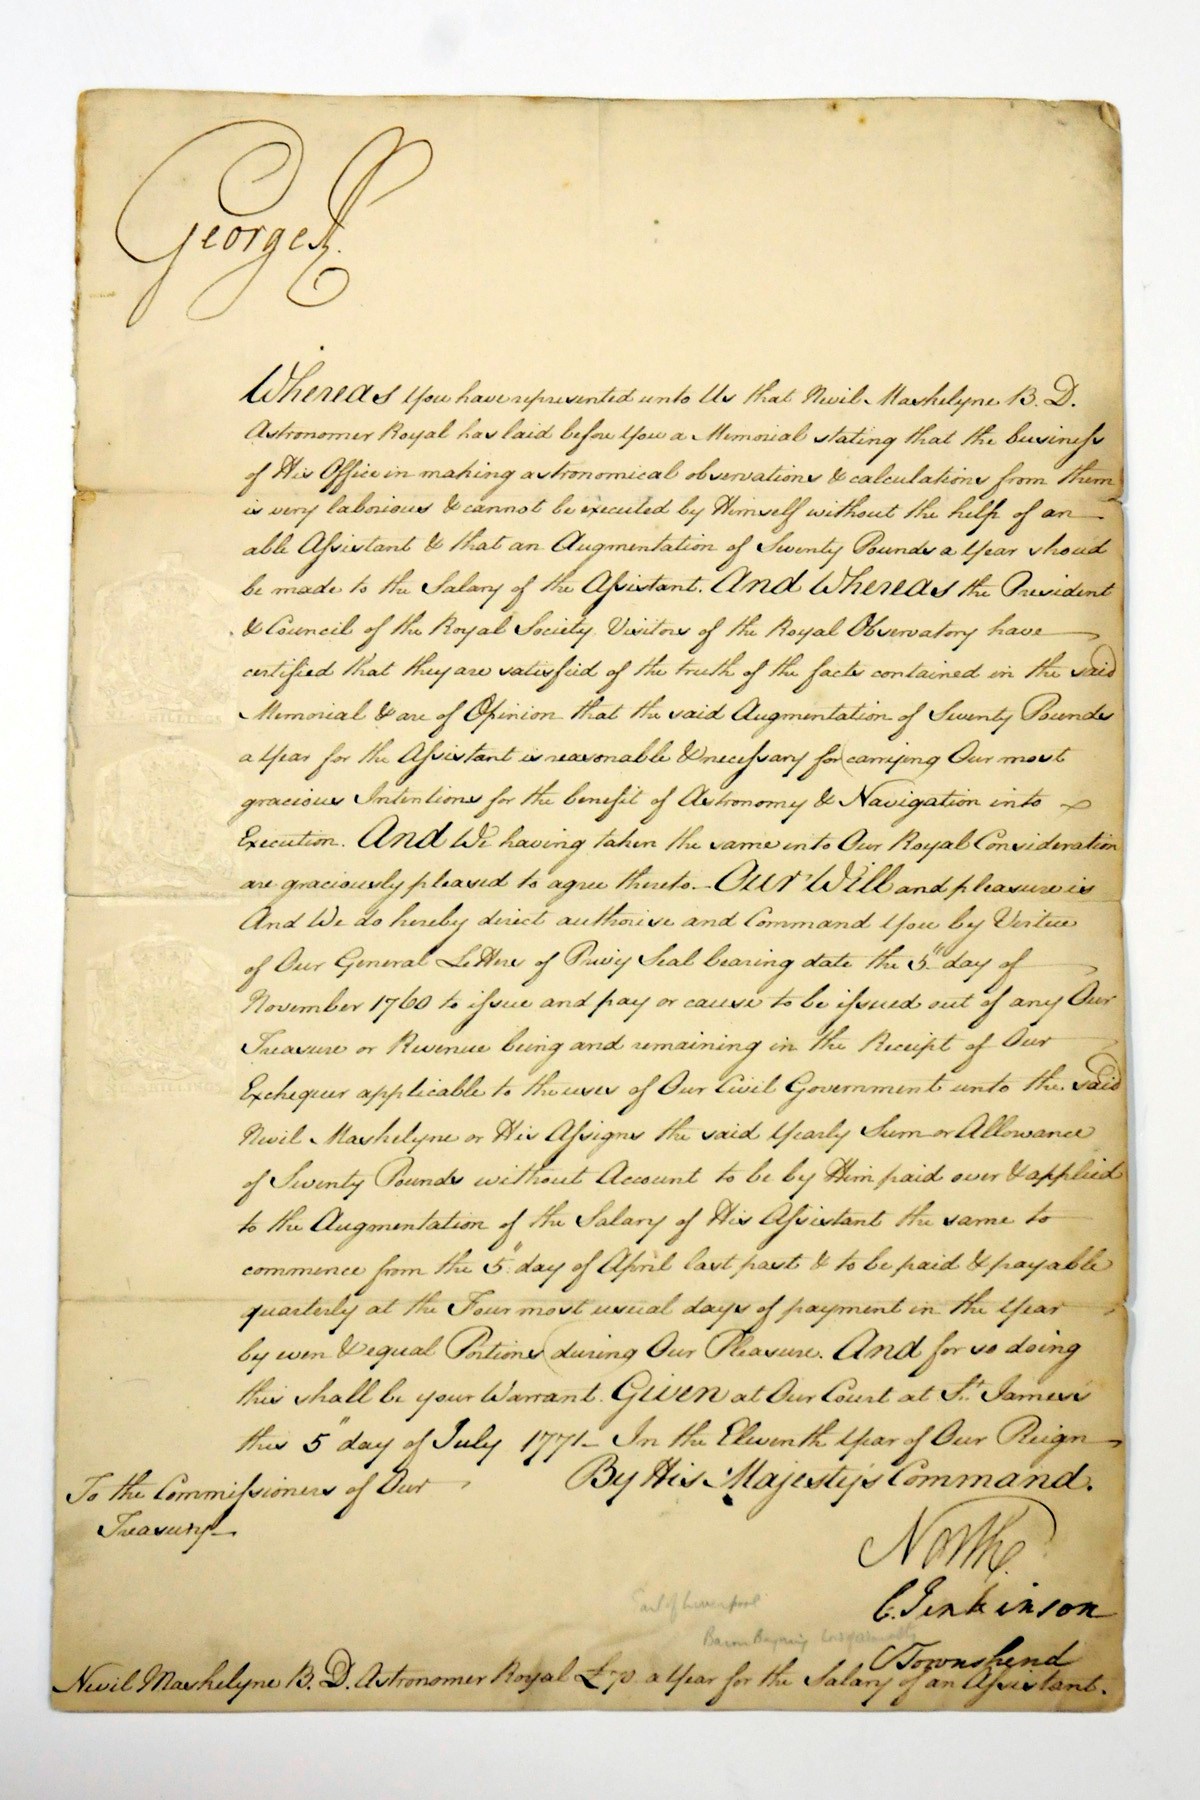 George R.
Whereas You have represented unto Us that Nevil Maskelyne B. D.
Astronomer Royal has laid before You a Memorial stating that the business
of His Office in making astronomical observations & calculations from them
is very laborious & cannot be executed by Himself without the help of an
able Assistant & that an Augmentation of Seventy Pounds a Year should
be made to the Salary of the Assistant. And Whereas the President
& Council of the Royal Society Visitors of the Royal Observatory have
certified that they are satisfied of the truth of the facts contained in the said
Memorial & are of Opinion that the said Augmentation of Seventy Pounds
a Year for the Assistant is reasonable & necessary for carrying Our most
gracious Intentions for the benefit of Astronomy & Navigation into
Execution. And We having taken the same into Our Royal Consideration
are graciously pleased to agree thereto. Our Will and pleasure is
And We do hereby direct authorise and Command You by Virtue
of Our General Letters of Privy Seal bearing date the 5" day of
November 1760 to issue and pay or cause to be issued out of any Our
Treasure or Revenue being and remaining in the Receipt of Our
Exchequer applicable to the uses of Our Civil Government unto the said
Nevil Maskelyne or His Assigns the said Yearly Sum or Allowance
of Seventy Pounds without Account to be by Him paid over & applied
to the Augmentation of the Salary of His Assistant the same to
commence from the 5" day of April last past & to be paid & payable
quarterly at the Four most usual days of payment in the Year
by even & equal Portions during Our Pleasure. And for so doing
this shall be your Warrant. Given at Our Court at St. James's
this 5" day of July 1771 - In the Eleventh Year of Our Reign
By His Majesty's Command.
To the Commissioners of Our
Treasury
North
C. Jenkinson
Earl of Liverpool
C Townshend
Nevil Maskelyne B. D. Astronomer Royal £70 a Year for the Salary of an Assistant.